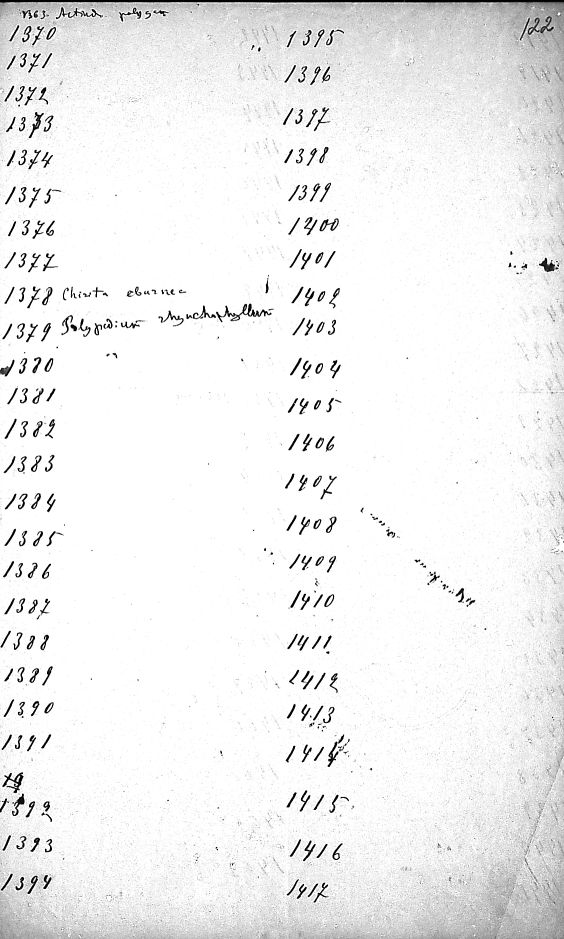 122
1363. Actinid. polygam
1370
1371
1372
1373
1374
1375
1376
1377
1378 Chirita eburnea
1379 Polypodium rhynchophyllum
1380
1381
1382
1383
1384
1385
1386
1387
1388
1389
1390
1391
19
1392
1393
1394
1395
1396
1397
1398
1399
1400
1401
1402
1403
1404
1405
1406
1407
1408
1409
1410
1411
1412
1413
1414
1415
1416
1417